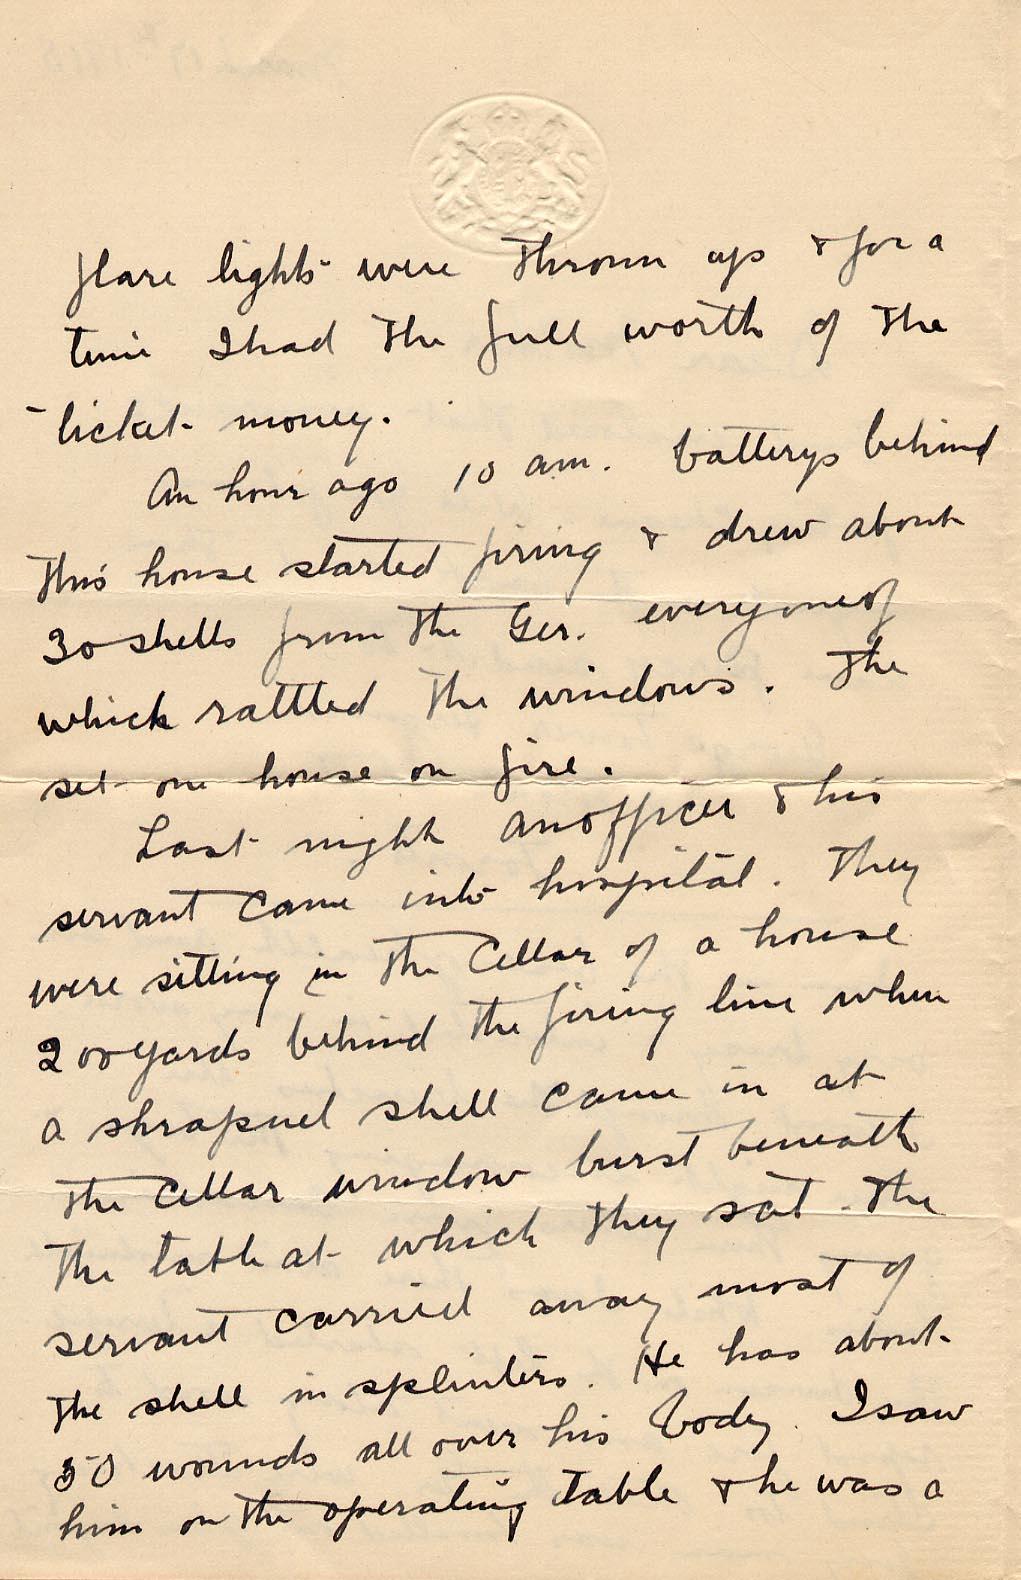 flare lights were thrown up & for a
time I had the full worth of the
ticket money.
An hour ago 10 am. batterys behind
this house started firing & drew about
30 shells from the Ger. everyone of
which rattled the windows. The
set one house on fire.
Last night an officer & his
servant came into hospital. They
were sitting in the cellar of a house
200 yards behind the firing line when
a shrapnel shell came in at
the cellar window burst beneath
the table at which they sat. The
servant carried away most of
the shell in splinters. He has about
50 wounds all over his body. I saw
him on the operating table & he was a